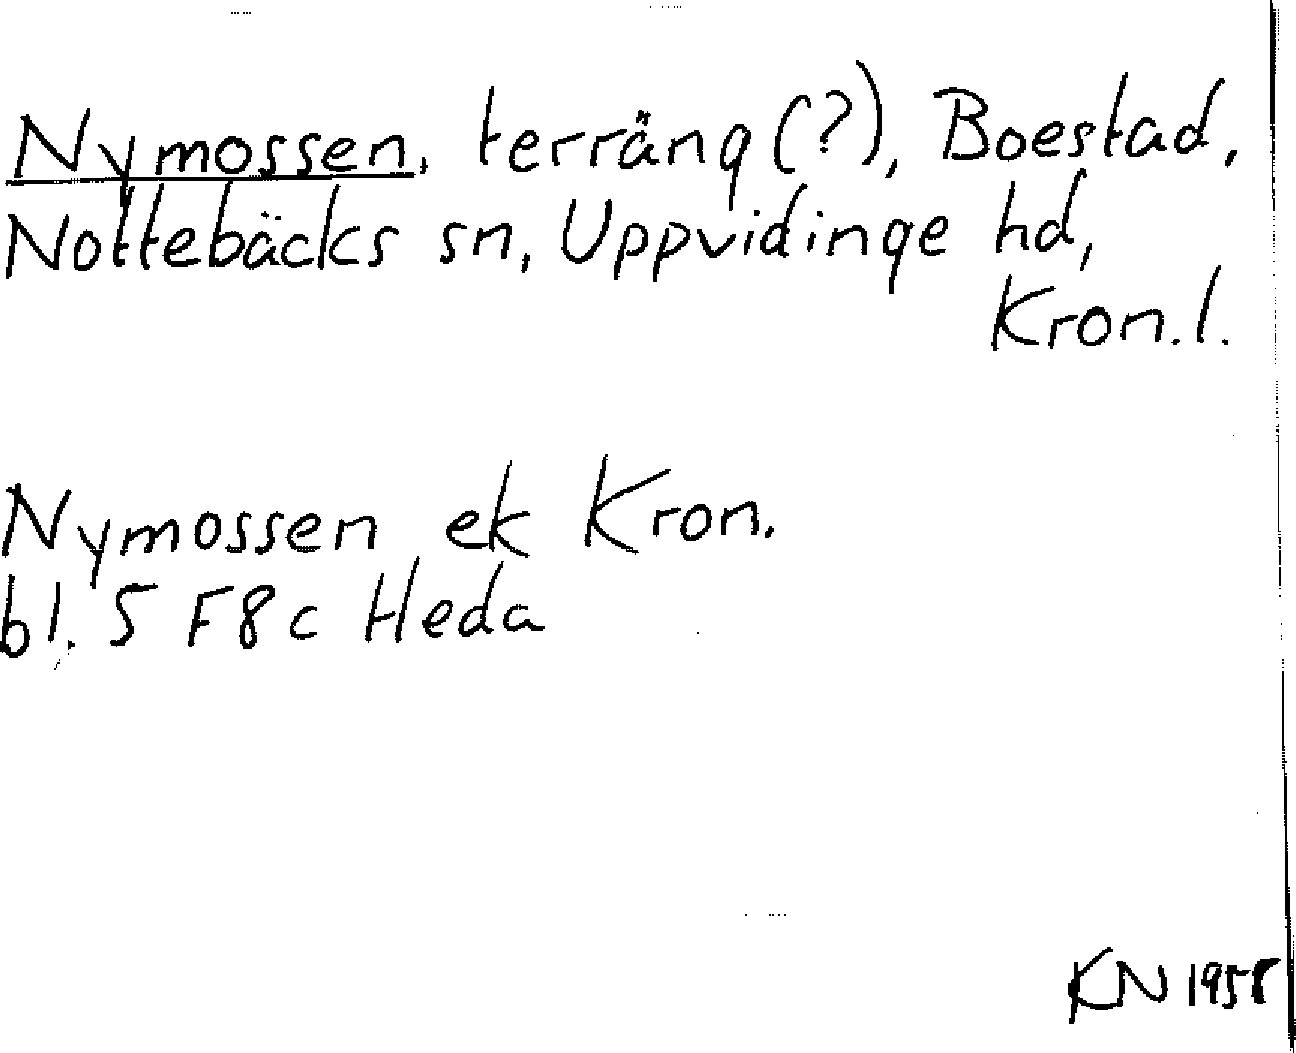 Nymossen, terräng (?), Boestad,
Nottebäcks sn, Uppvidinge hd,
Kron. l.
Nymossen ek Kron.
bl. 5 F8c Heda
KN 1958